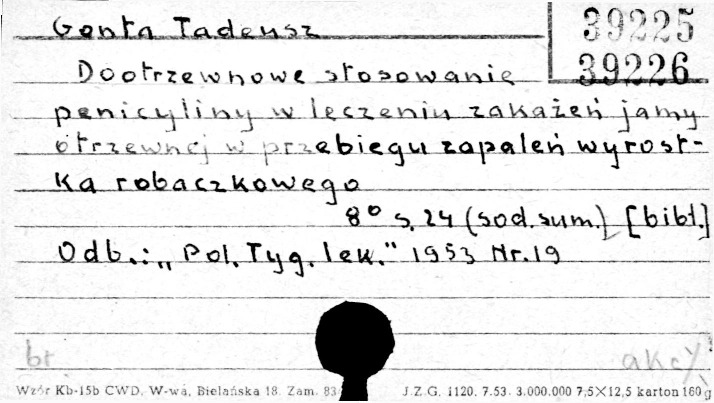 Gonta Tadeusz
39225
39226
Dootrzewnowe stosowanie
penicyliny w leczeniu zakażeń jamy
otrzewnej w przebiegu zapaleń wyrost-
ka robaczkowego
8° s. 24 (sod. sum.) [bibl.]
Odb.: „Pol. Tyg. lek." 1953 Nr. 19
br
akcy
Wzór Kb-15b CWD, W-wa, Bielańska 18. Zam. 83
J.Z.G. 1120. 7.53. 3.000.000 7,5×12,5 karton 160 g